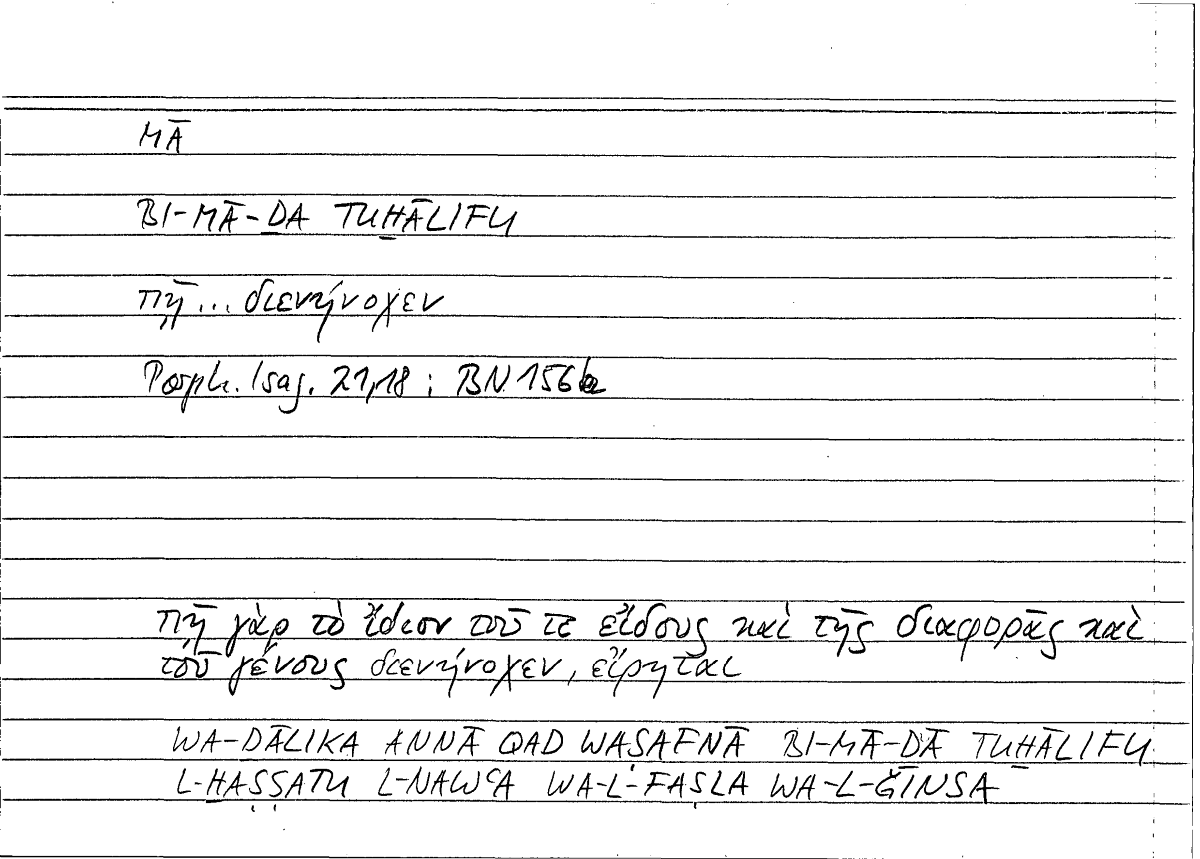 MĀ
BI-MĀ-ḎA TUḪĀLIFU
πῇ ... διενήνοχεν
Porph. Isag. 21,18 ; BN 156b
πῇ γὰρ τὸ ἴδιον τοῦ τε εἴδους καὶ τῆς διαφορᾶς καὶ
τοῦ γένους διενήνοχεν, εἴρηται
WA-ḎĀLIKA ANNĀ QAD WAṢAFNĀ BI-MĀ-ḎĀ TUḪĀLIFU
L-ḪAṢṢATU L-NAWʿA WA-L-FAṢLA WA-L-ǦINSA